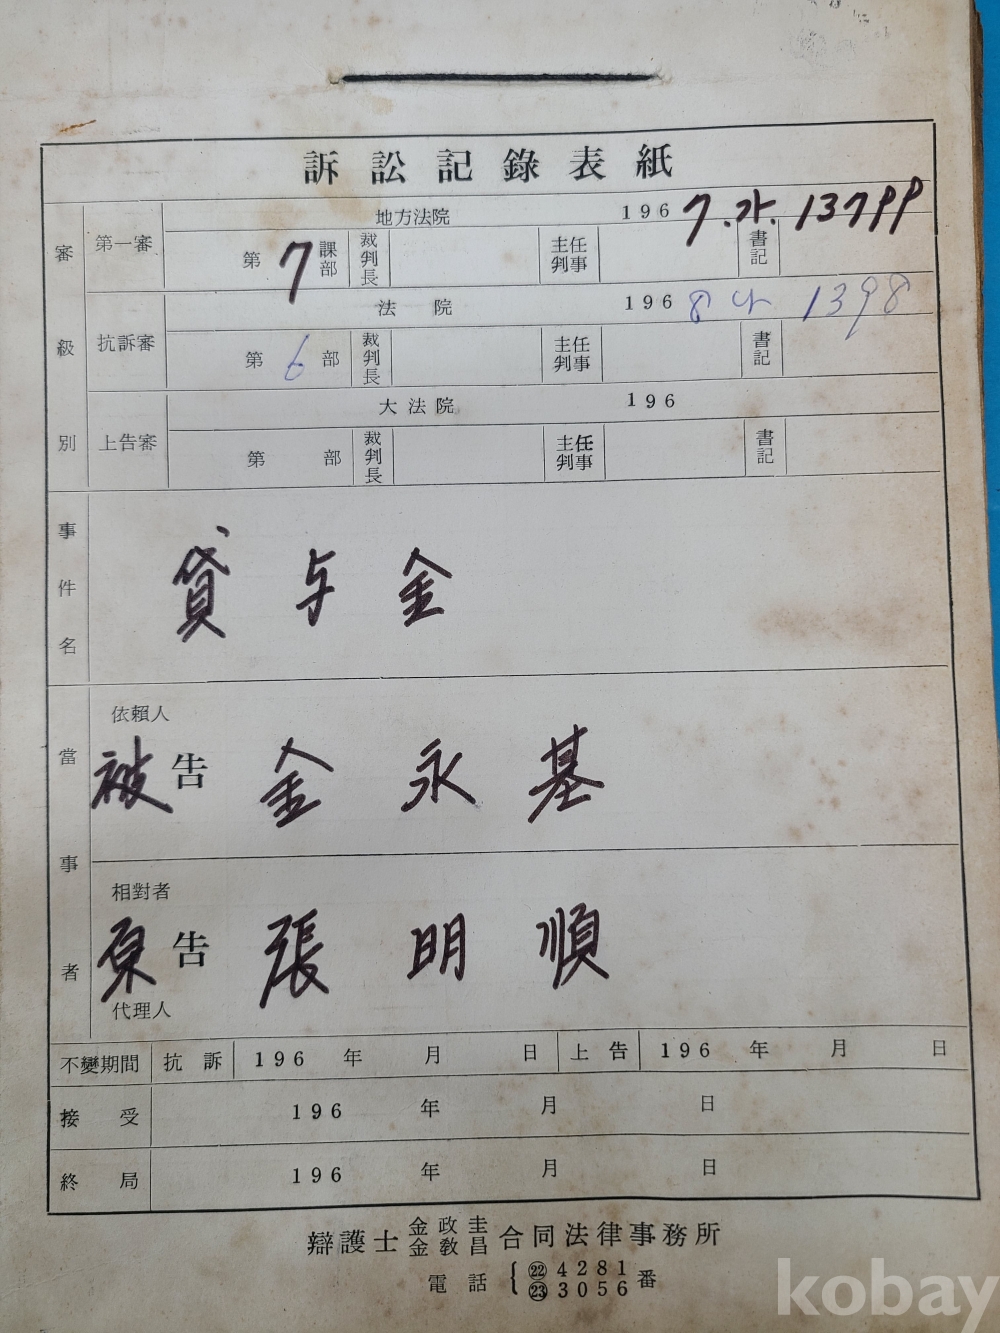 訴訟記錄表紙
審級別
第一審
地方法院 1967.가.13799
第7課部 裁判長 主任判事 書記
抗訴審
法院 1968나1398
第6部 裁判長 主任判事 書記
上告審
大法院 196
第 部 裁判長 主任判事 書記
事件名
貸与金
當事者
依賴人
被告 金永基
相對者
原告 張明順
代理人
不變期間 抗訴 196 年 月 日 上告 196 年 月 日
接受 196 年 月 日
終局 196 年 月 日
辯護士 金政圭 金敎昌 合同法律事務所
電話 ㉒4281 ㉓3056 番
kobay